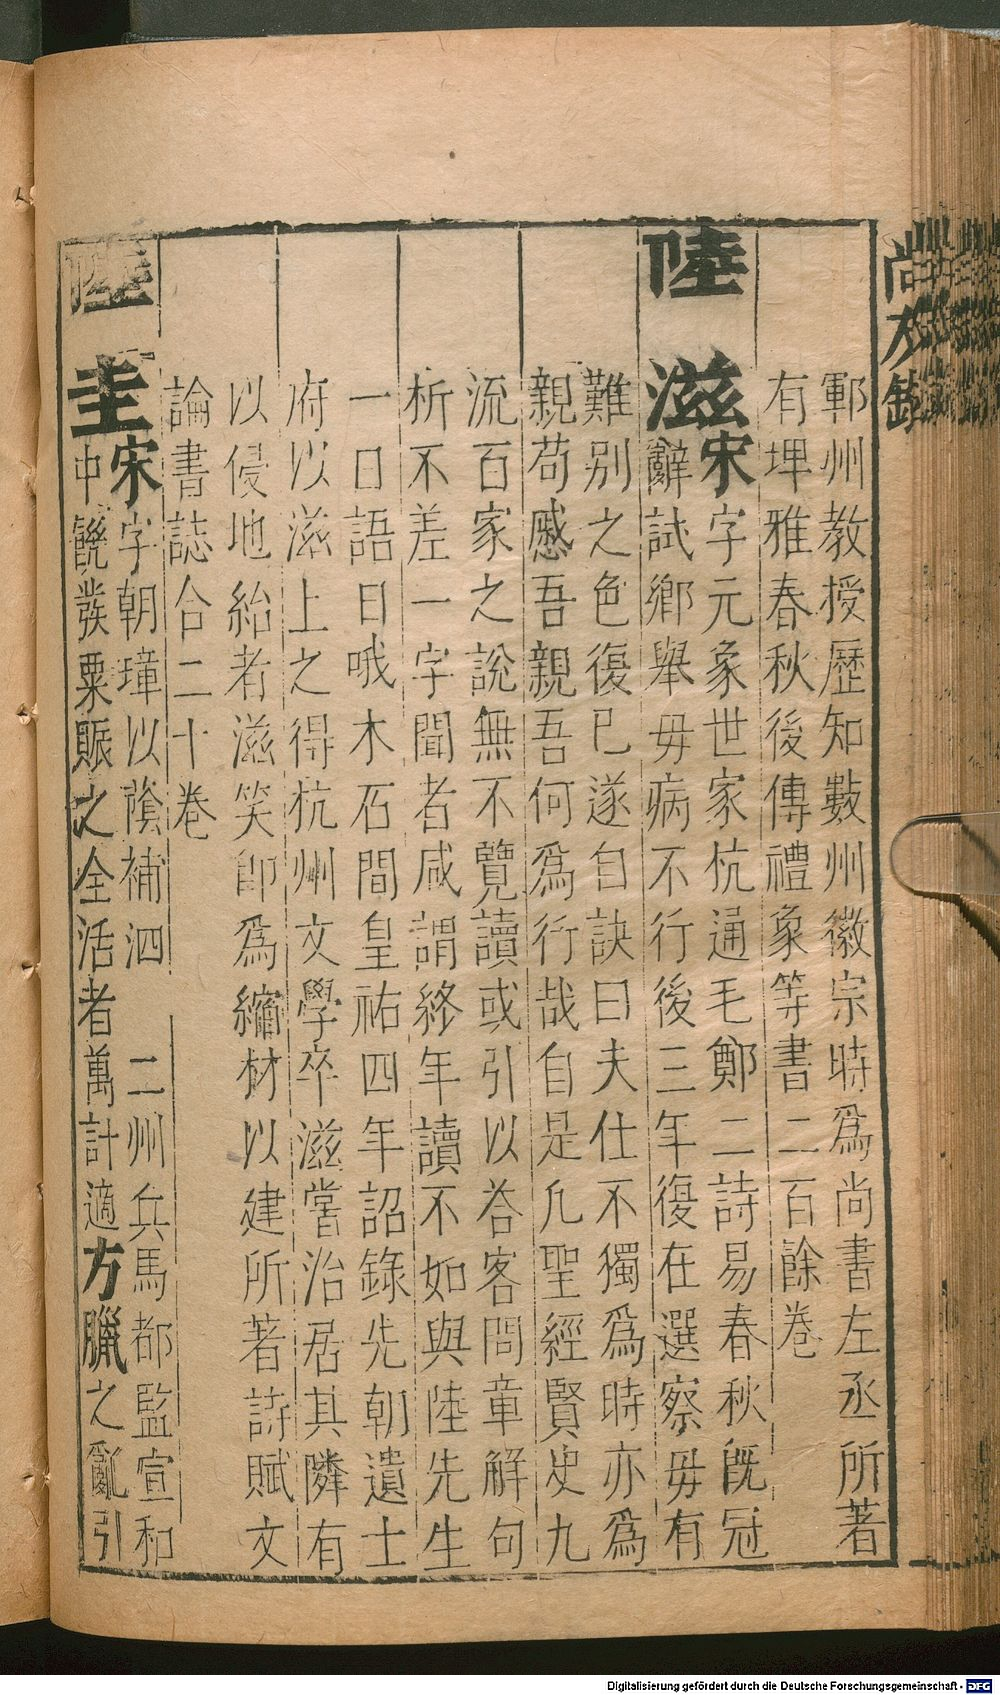 尚友錄
鄆州教授歷知數州徽宗時爲尚書左丞所著
有埤雅春秋後傳禮象等書二百餘卷
陸滋
宋字元象世家杭通毛鄭二詩易春秋既冠
辭試鄉舉毋病不行後三年復在選察毋有
難別之色復已遂自訣曰夫仕不獨爲時亦爲
親苟慼吾親吾何爲行哉自是凢聖經賢史九
流百家之說無不覽讀或引以荅客問章解句
析不差一字聞者咸謂終年讀不如與陸先生
一日語日哦木石間皇祐四年詔錄先朝遺士
府以滋上之得杭州文學卒滋嘗治居其隣有
以侵地紿者滋笑卽爲縮材以建所著詩賦文
論書誌合二十卷
陸圭
宋字朝璋以䕃補泗 二州兵馬都監宣和
中饑發粟賑之全活者萬計適方臘之亂引
Digitalisierung gefördert durch die Deutsche Forschungsgemeinschaft - DFG